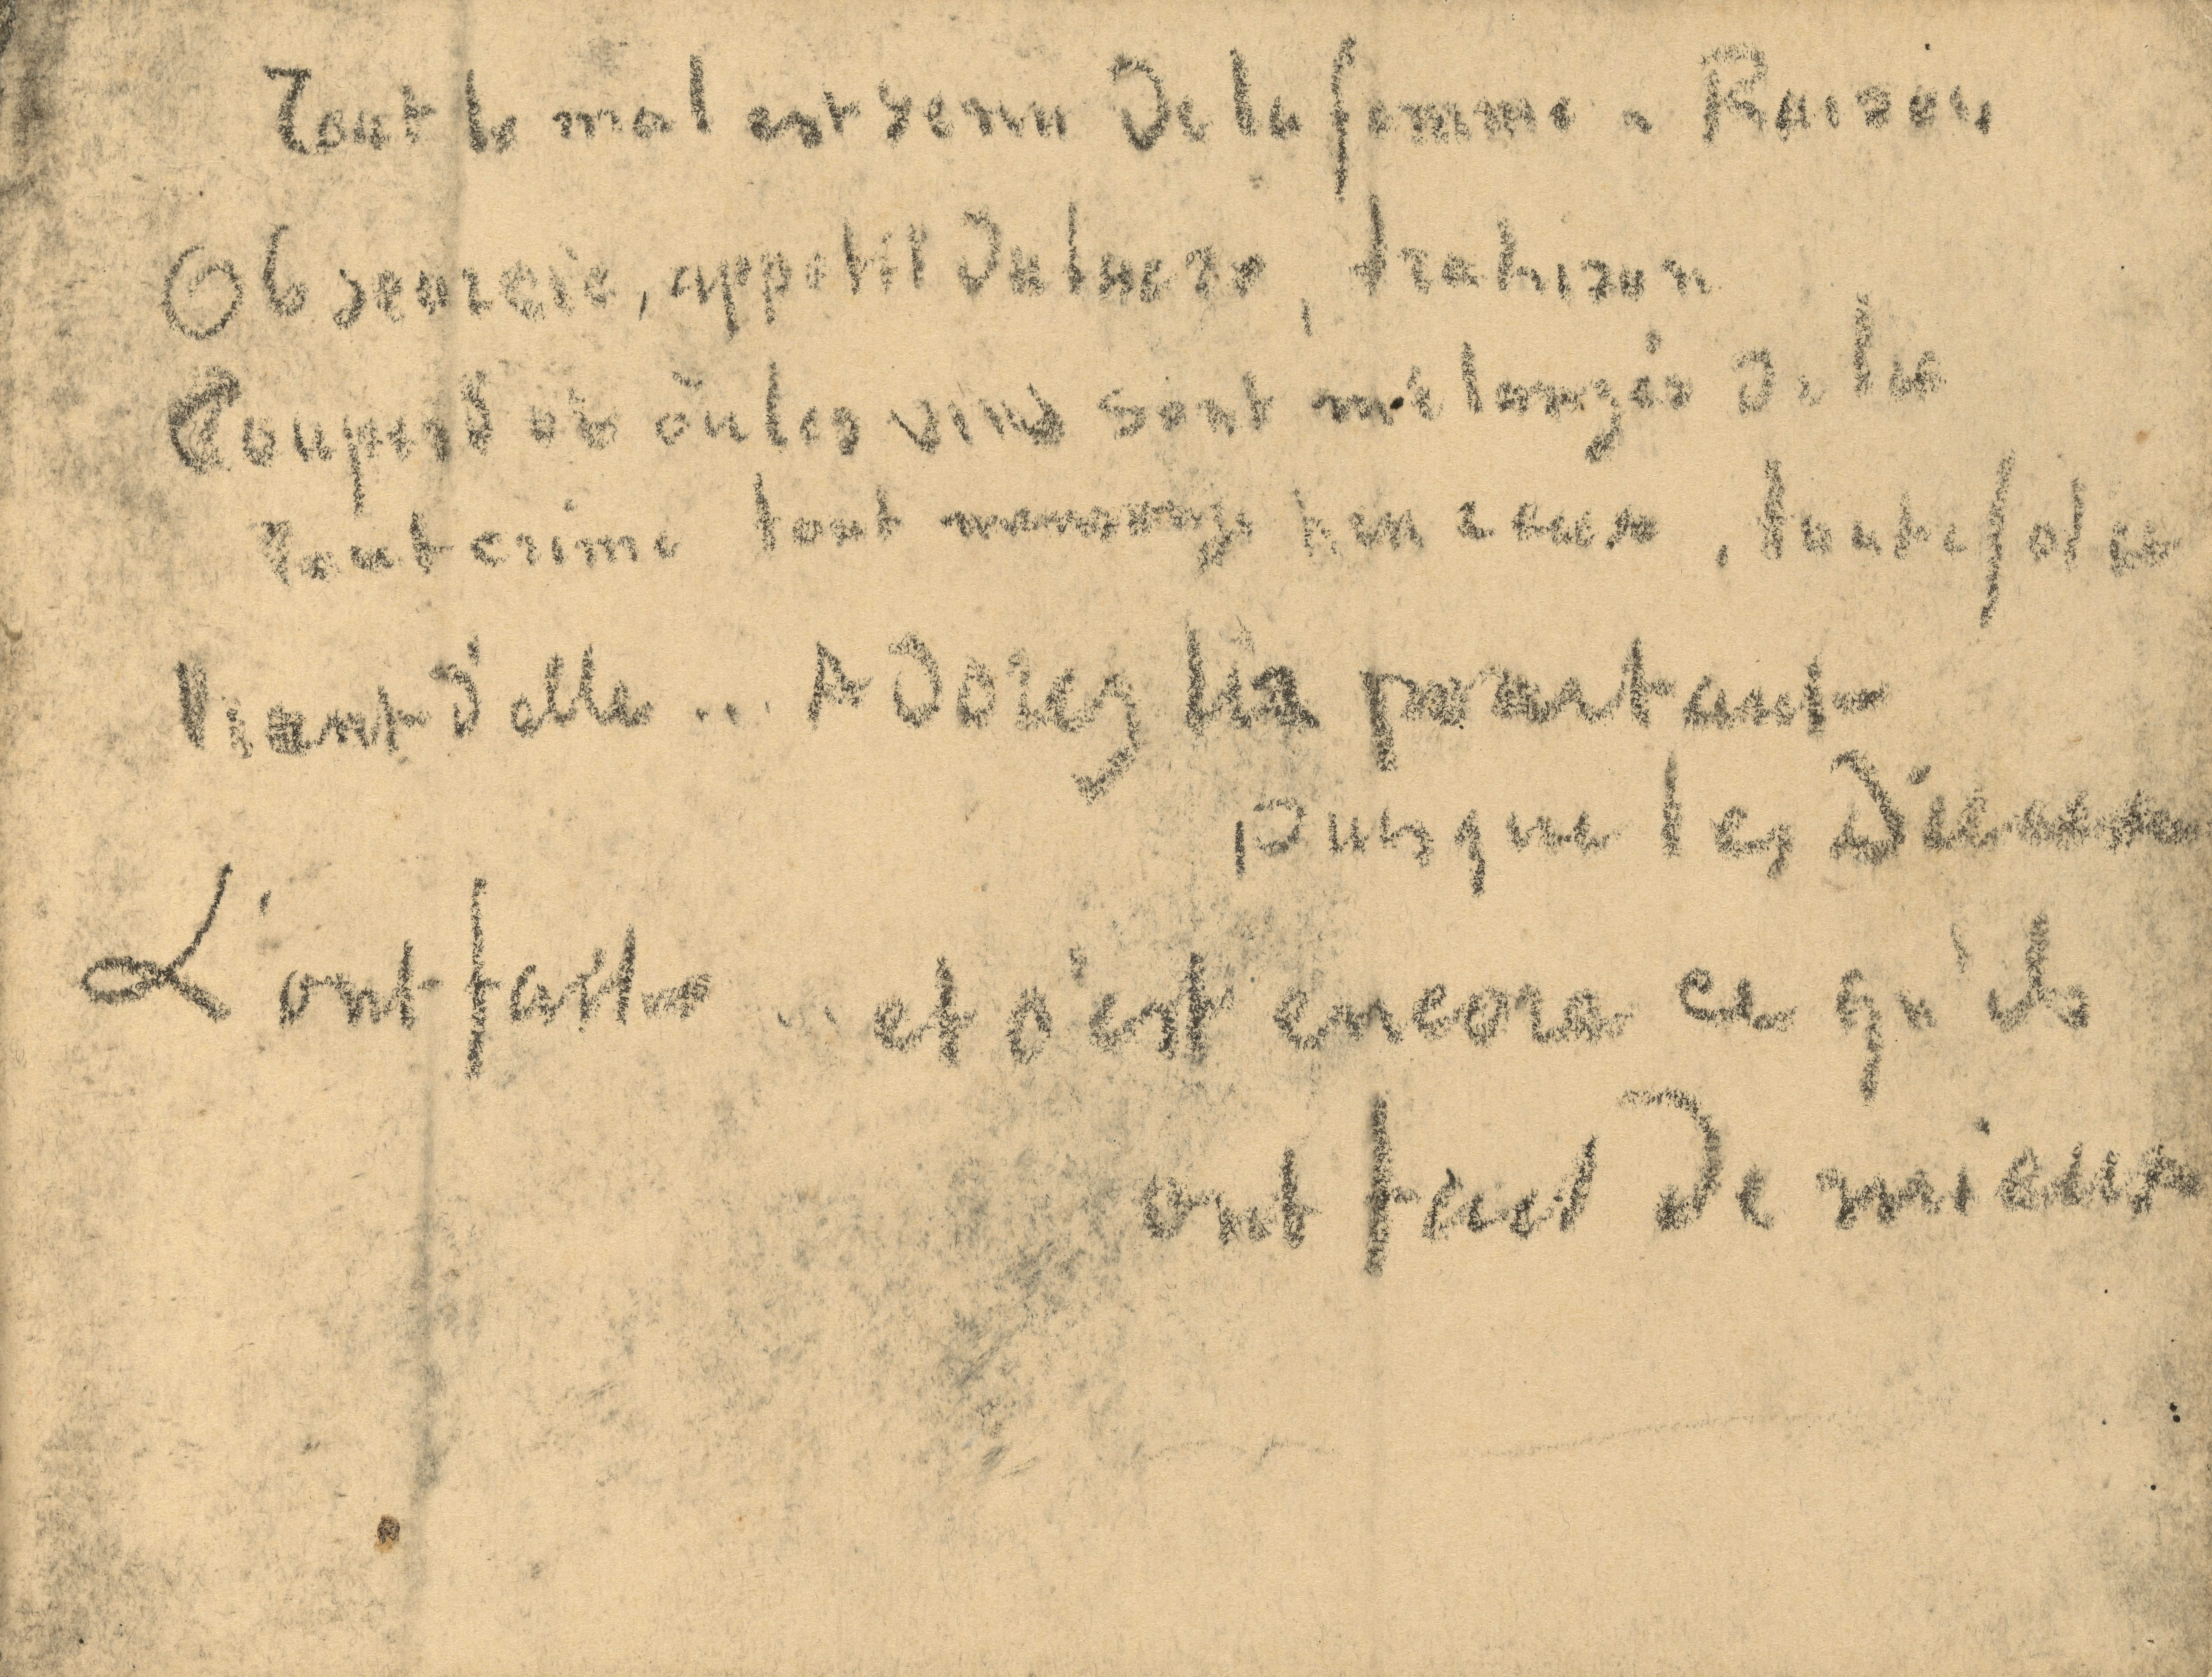 Tout le mal est venu de la femme - Raison
Obscurcie, appétit du lucre, trahison
Coupes d où où les vins sont mélangés de lie
Tout crime tout mensonge heureux, toute folie
Vient d'elle ... Adorez la pourtant
puisque les Dieux
L'ont faite ... et c'est encore ce qu'ils
ont fait de mieux